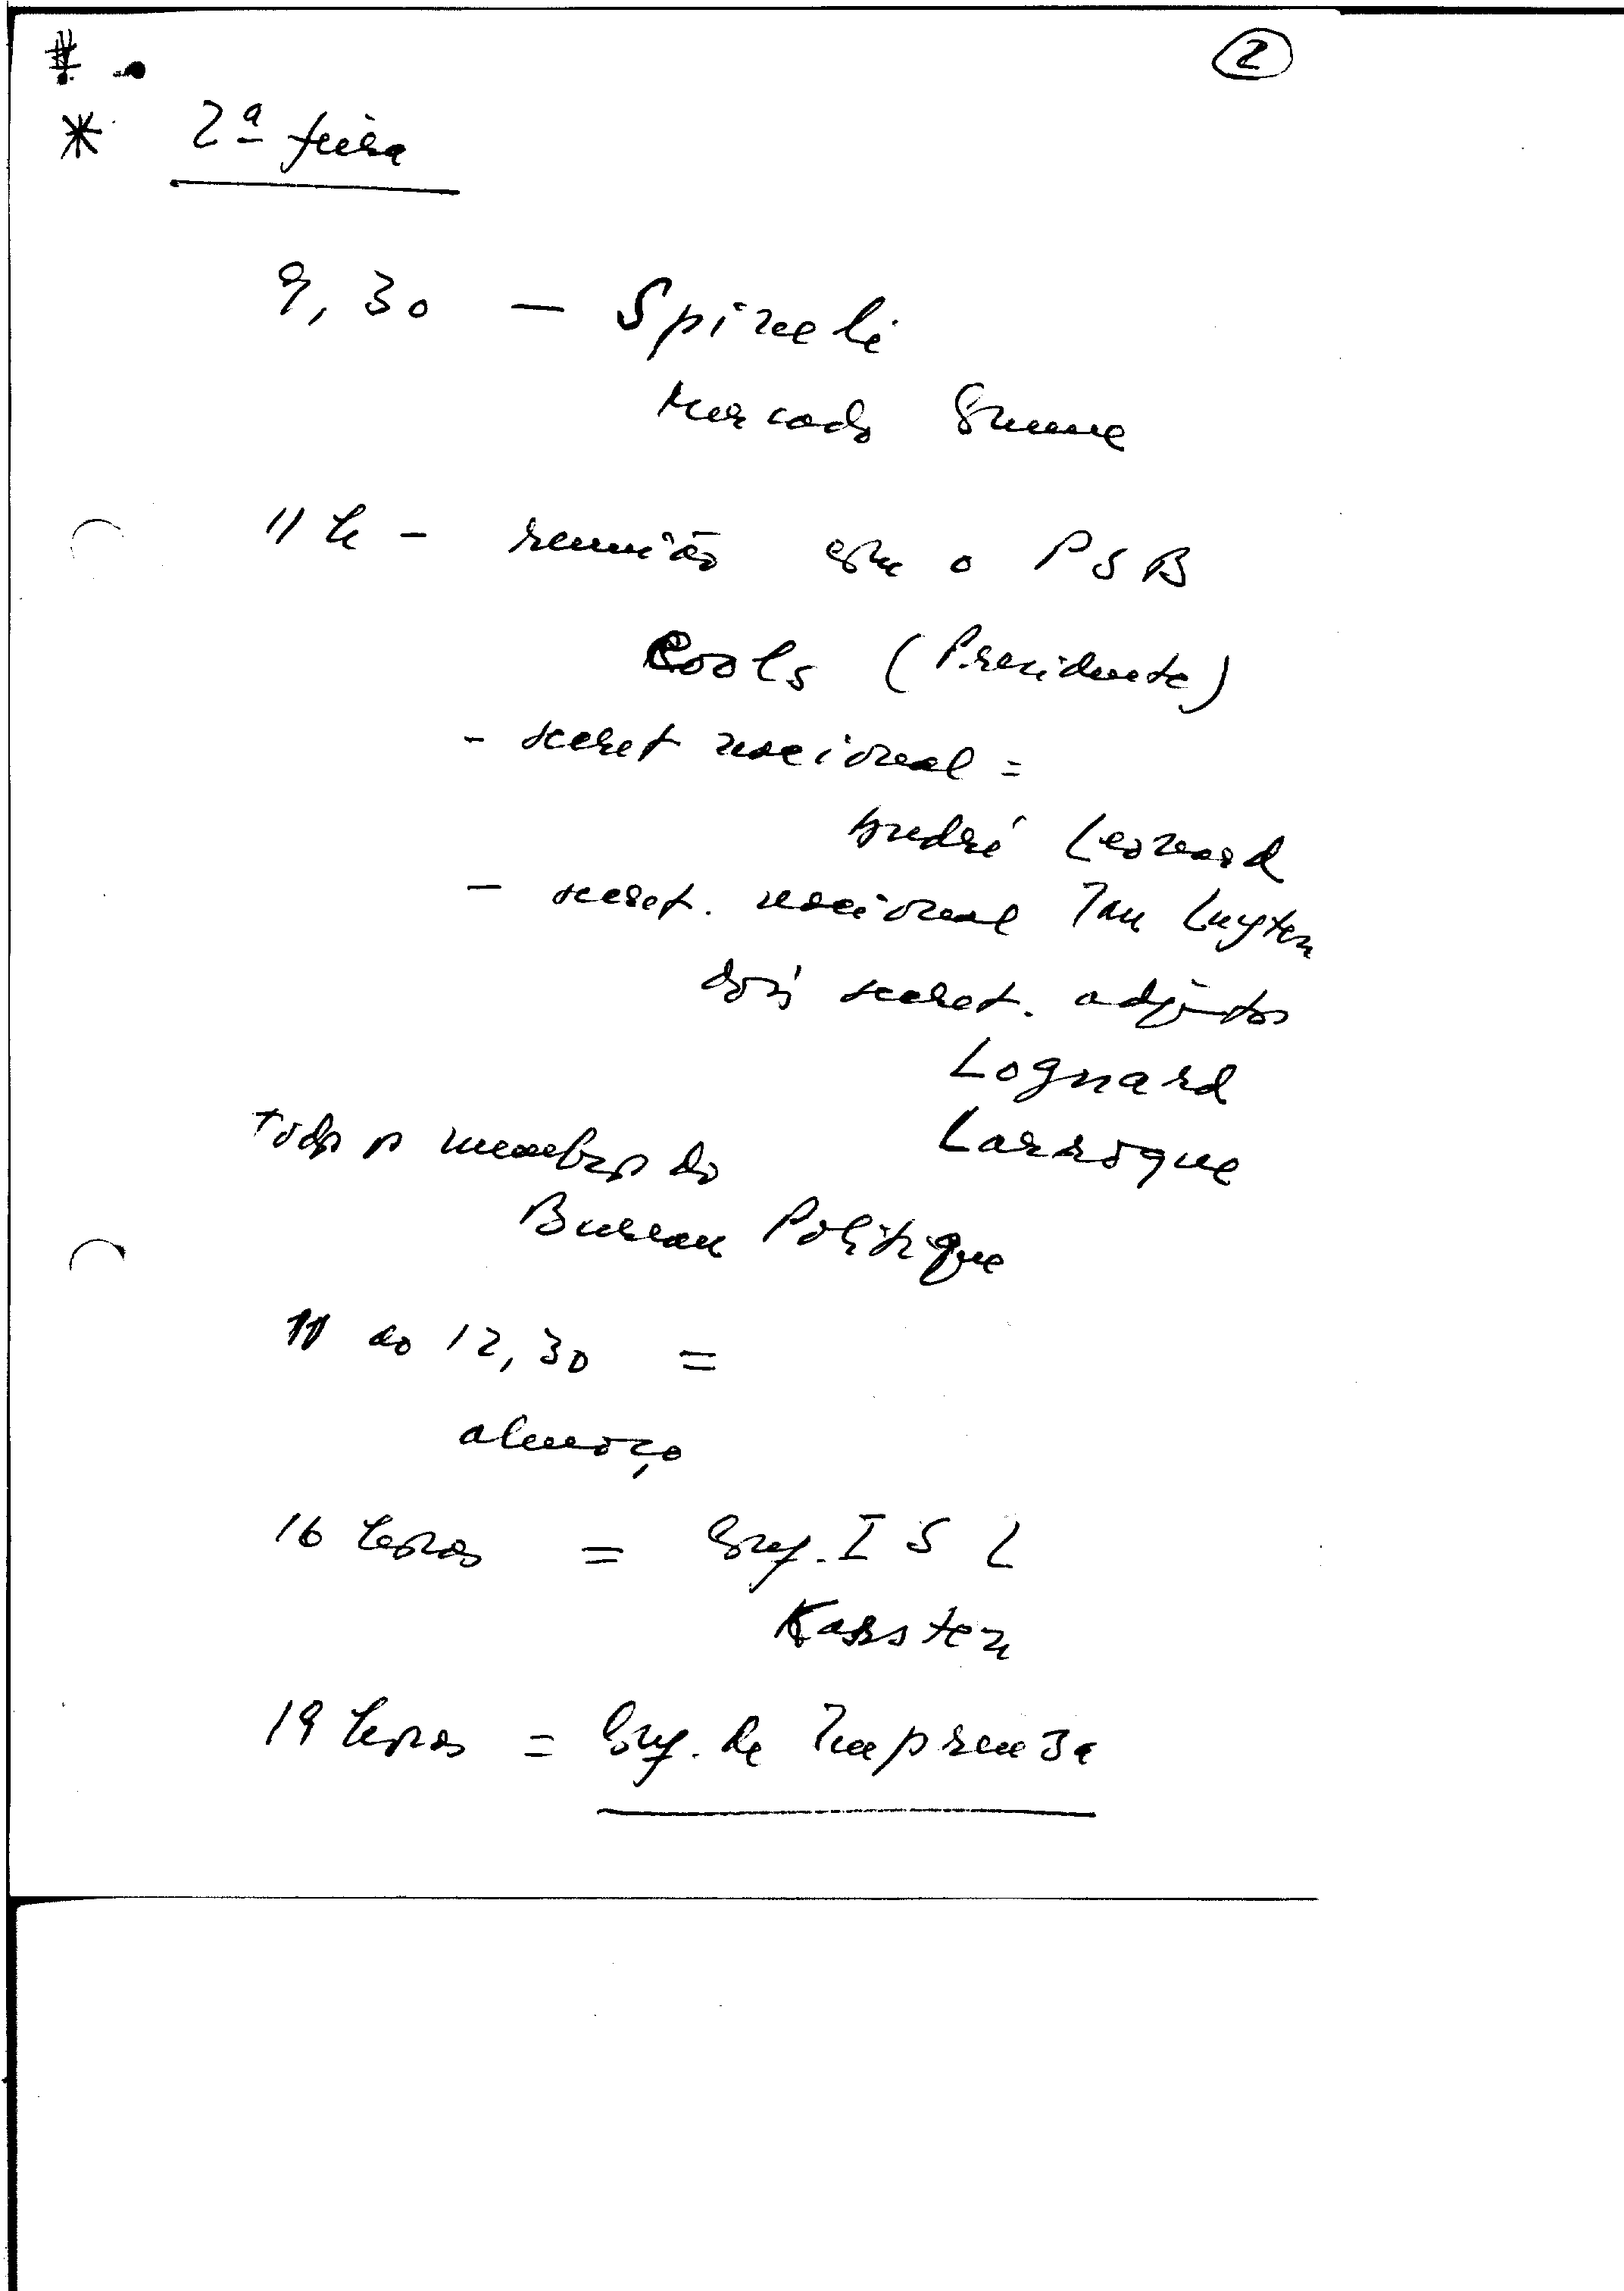 2
2ª feira
9,30 - Spineli
Mercado Comum
11 h - reunião com o PSB
Cools (Presidente)
- secret nacional =
André Leonard
- secret. nacional Jan Luyten
dois secret. adjuntos
Lognard
Larroque
todos os membros do
Bureau Politique
11 às 12,30 =
almoço
16 horas = Conf. I S L
Karsten
19 horas = Conf. de Imprensa